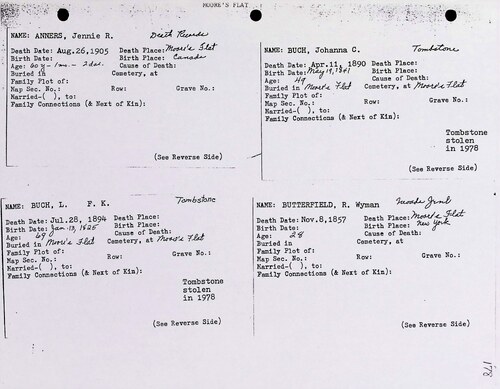 MOORE'S FLAT
NAME: ANNERS, Jennie R. Death Records
Death Date: Aug.26,1905 Death Place: Moore's Flat
Birth Date: Birth Place: Canada
Age: 60y - 1m - 2 das. Cause of Death:
Buried in Cemetery, at
Family Plot of:
Map Sec. No.: Row: Grave No.:
Married-( ), to:
Family Connections (& Next of Kin):
(See Reverse Side)
NAME: BUCH, Johanna C. Tombstone
Death Date: Apr.11, 1890 Death Place:
Birth Date: May 19, 1841 Birth Place:
Age: 49 Cause of Death:
Buried in Moore's Flat Cemetery, at Moore's Flat
Family Plot of:
Map Sec. No.: Row: Grave No.:
Married-( ), to:
Family Connections (& Next of Kin):
Tombstone
stolen
in 1978
(See Reverse Side)
NAME: BUCH, L. F. K. Tombstone
Death Date: Jul.28, 1894 Death Place:
Birth Date: Jan. 13, 1825 Birth Place:
Age: 69 Cause of Death:
Buried in Moore's Flat Cemetery, at Moore's Flat
Family Plot of:
Map Sec. No.: Row: Grave No.:
Married-( ), to:
Family Connections (& Next of Kin):
Tombstone
stolen
in 1978
(See Reverse Side)
NAME: BUTTERFIELD, R. Wyman
Death Date: Nov.8,1857 Death Place: Moore's Flat
Birth Date: Birth Place: New York
Age: 28 Cause of Death:
Buried in Cemetery, at
Family Plot of:
Map Sec. No.: Row: Grave No.:
Married-( ), to:
Family Connections (& Next of Kin):
(See Reverse Side)
178